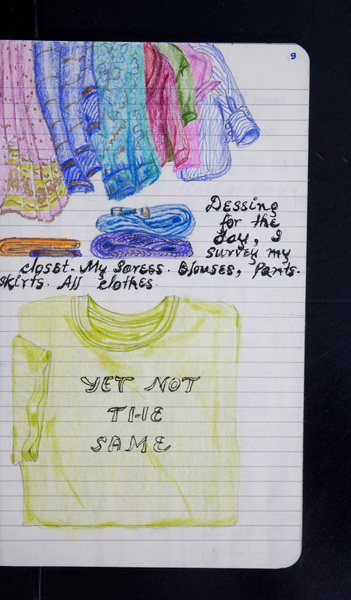 9
Dessing
for the
day, I
survey my
closet. My Sarees. Blouses, Pants.
skirts. All clothes.
YET NOT
THE
SAME